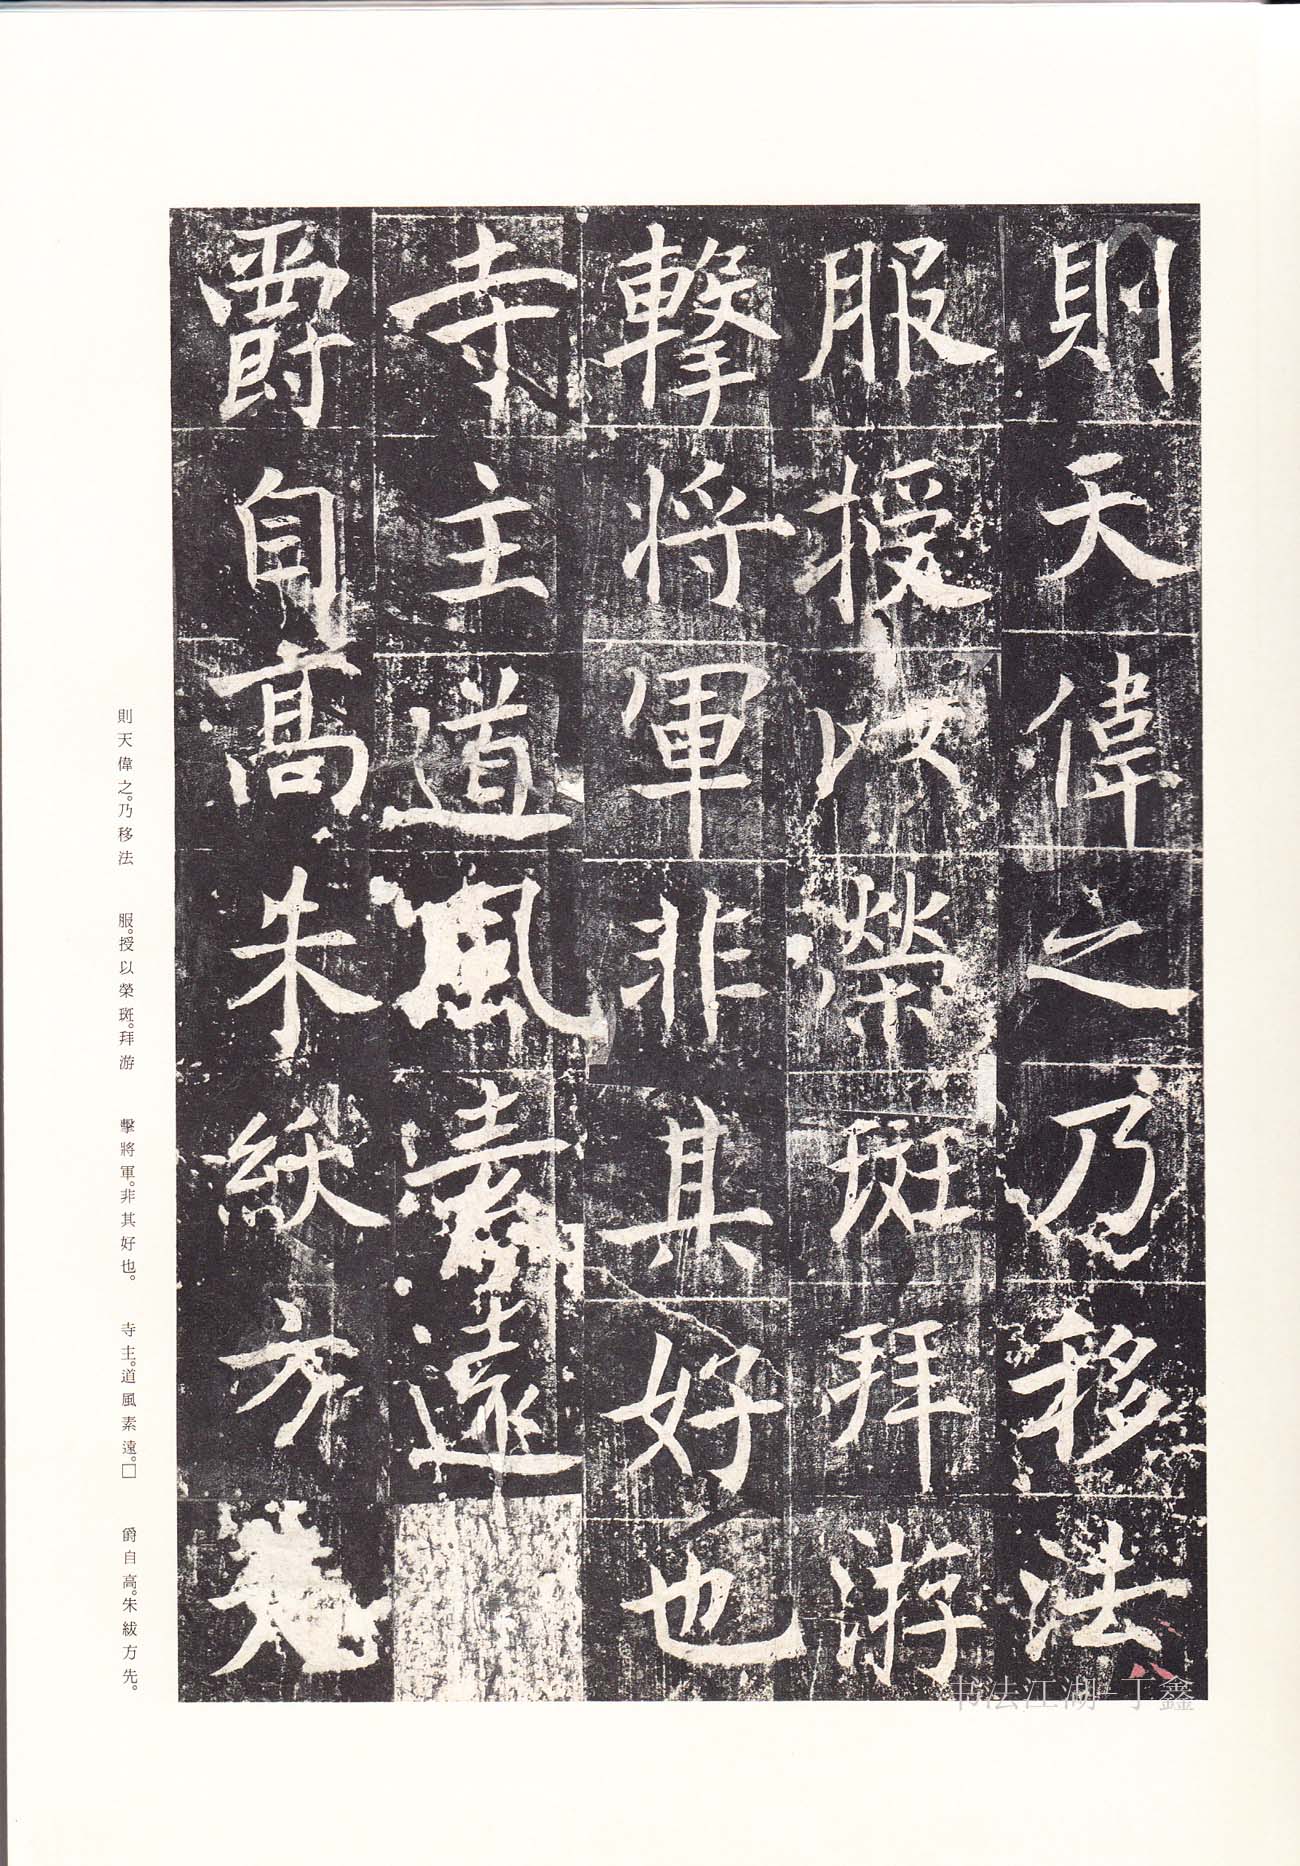 則天偉之乃移法
服授以榮斑拜游
擊將軍非其好也
寺主道風素遠
爵自高朱紱方先
則天偉之。乃移法　服。授以榮斑。拜游　擊將軍。非其好也。　寺主。道風素遠。□　爵自高。朱紱方先。
书法江湖-丁鑫